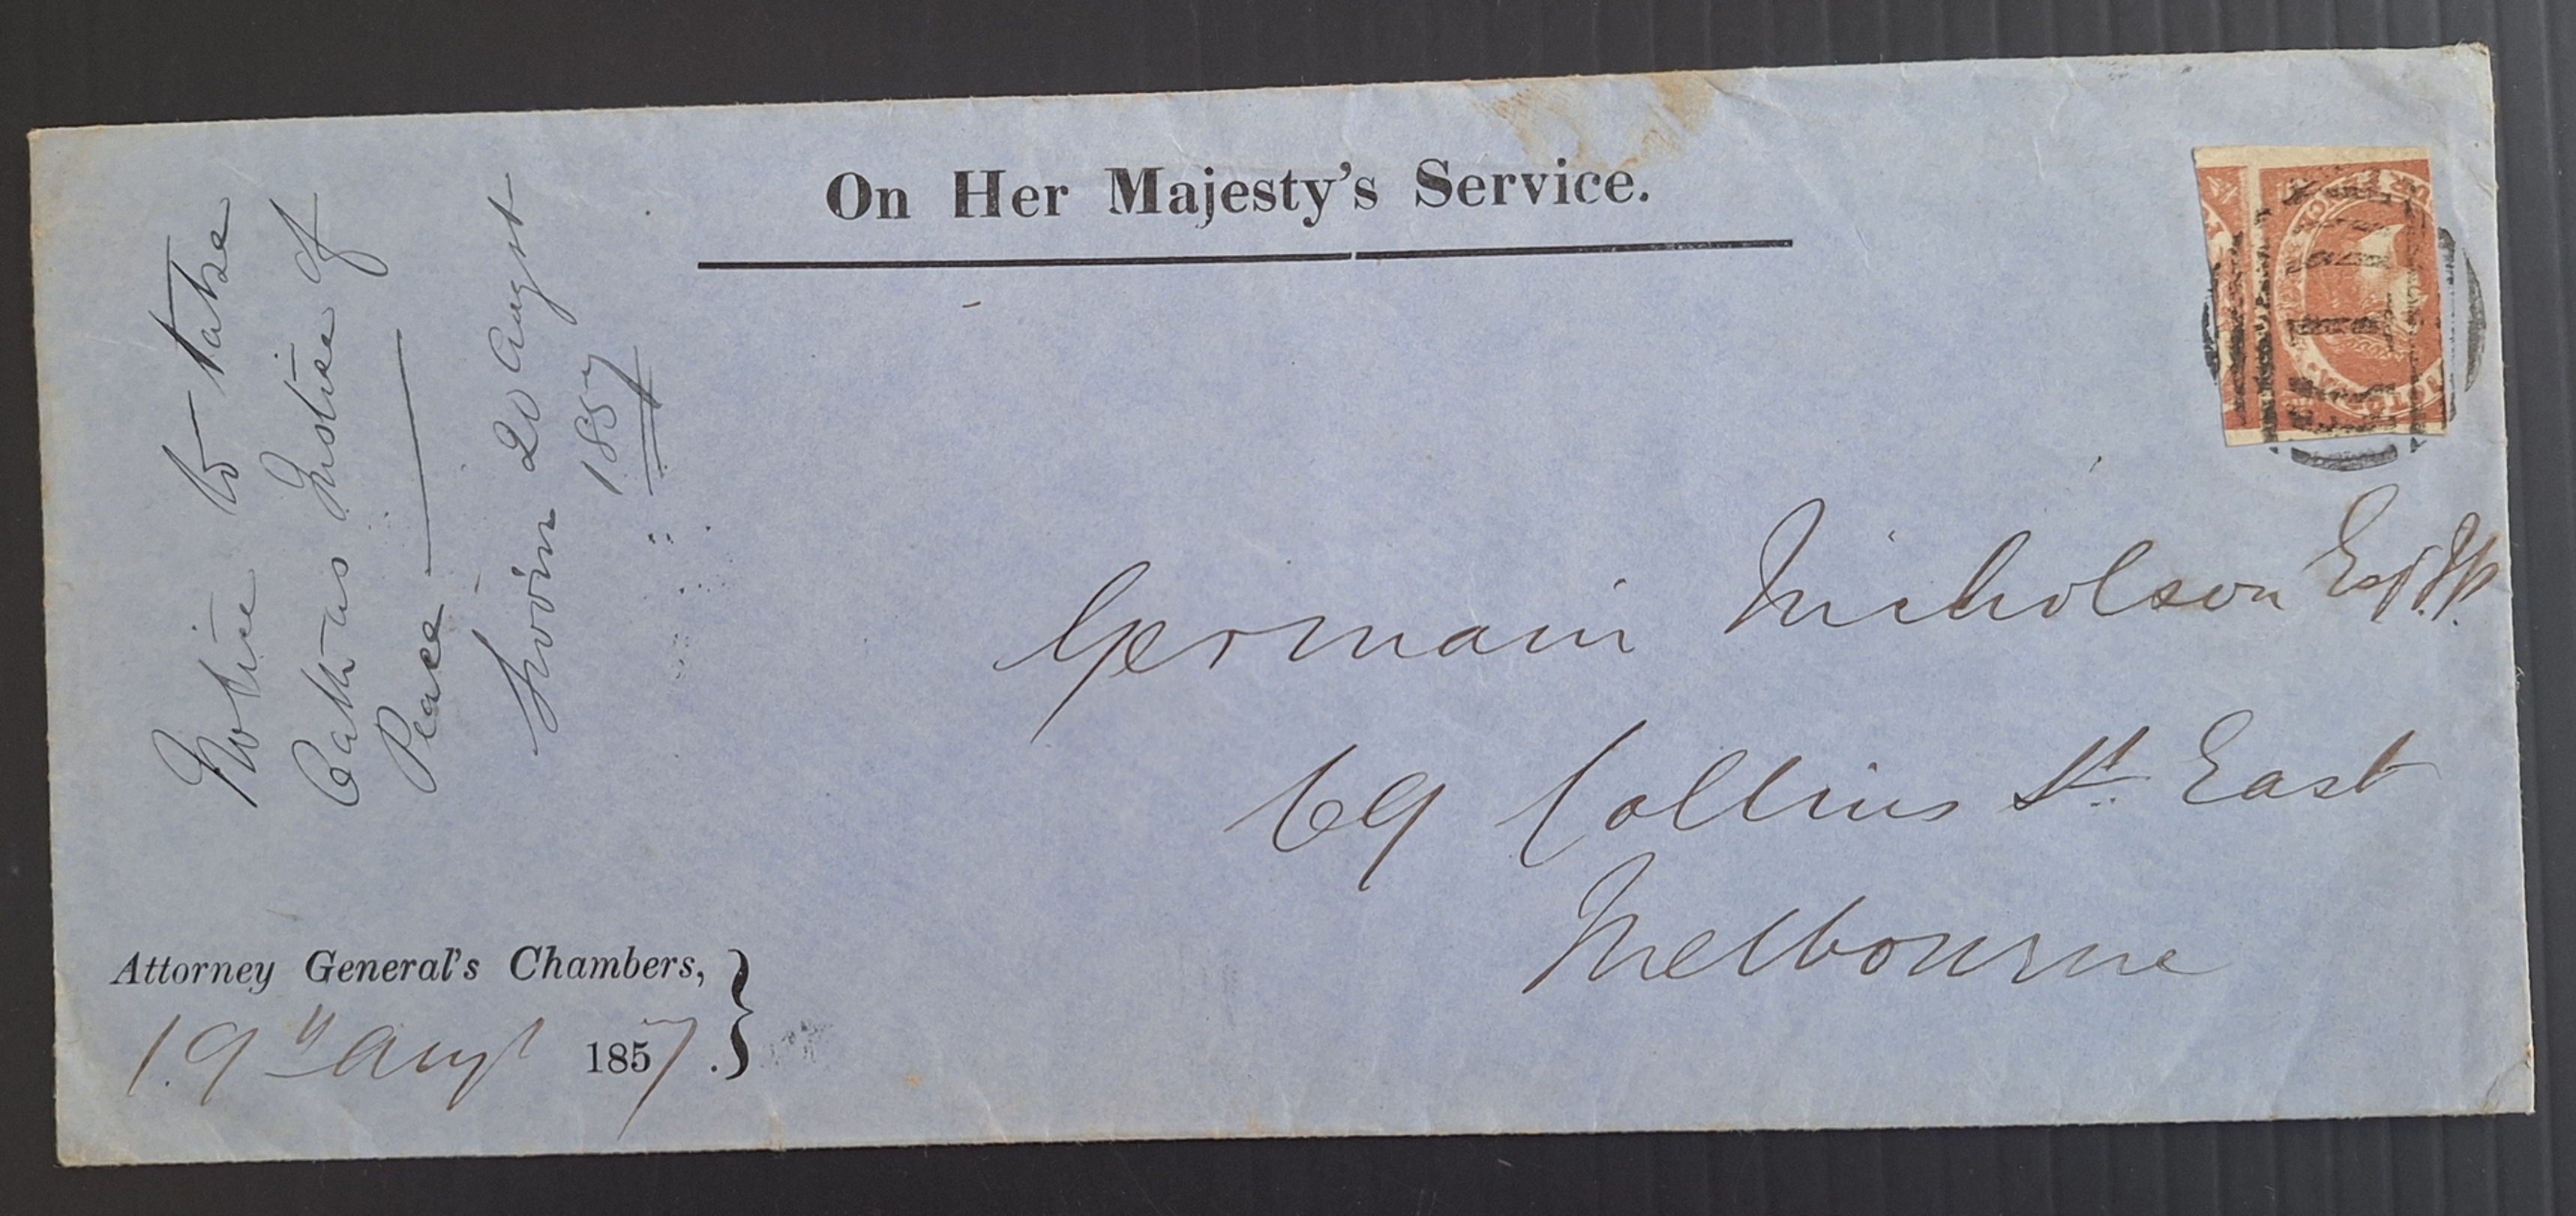 On Her Majesty's Service.
Notice to take
Oath as Justice of
Peace
Sworn 20 August
1857
Germain Nicholson Esq J.P.
69 Collins St. East
Melbourne
Attorney General's Chambers,
19th Augt 1857.
VICTORIA